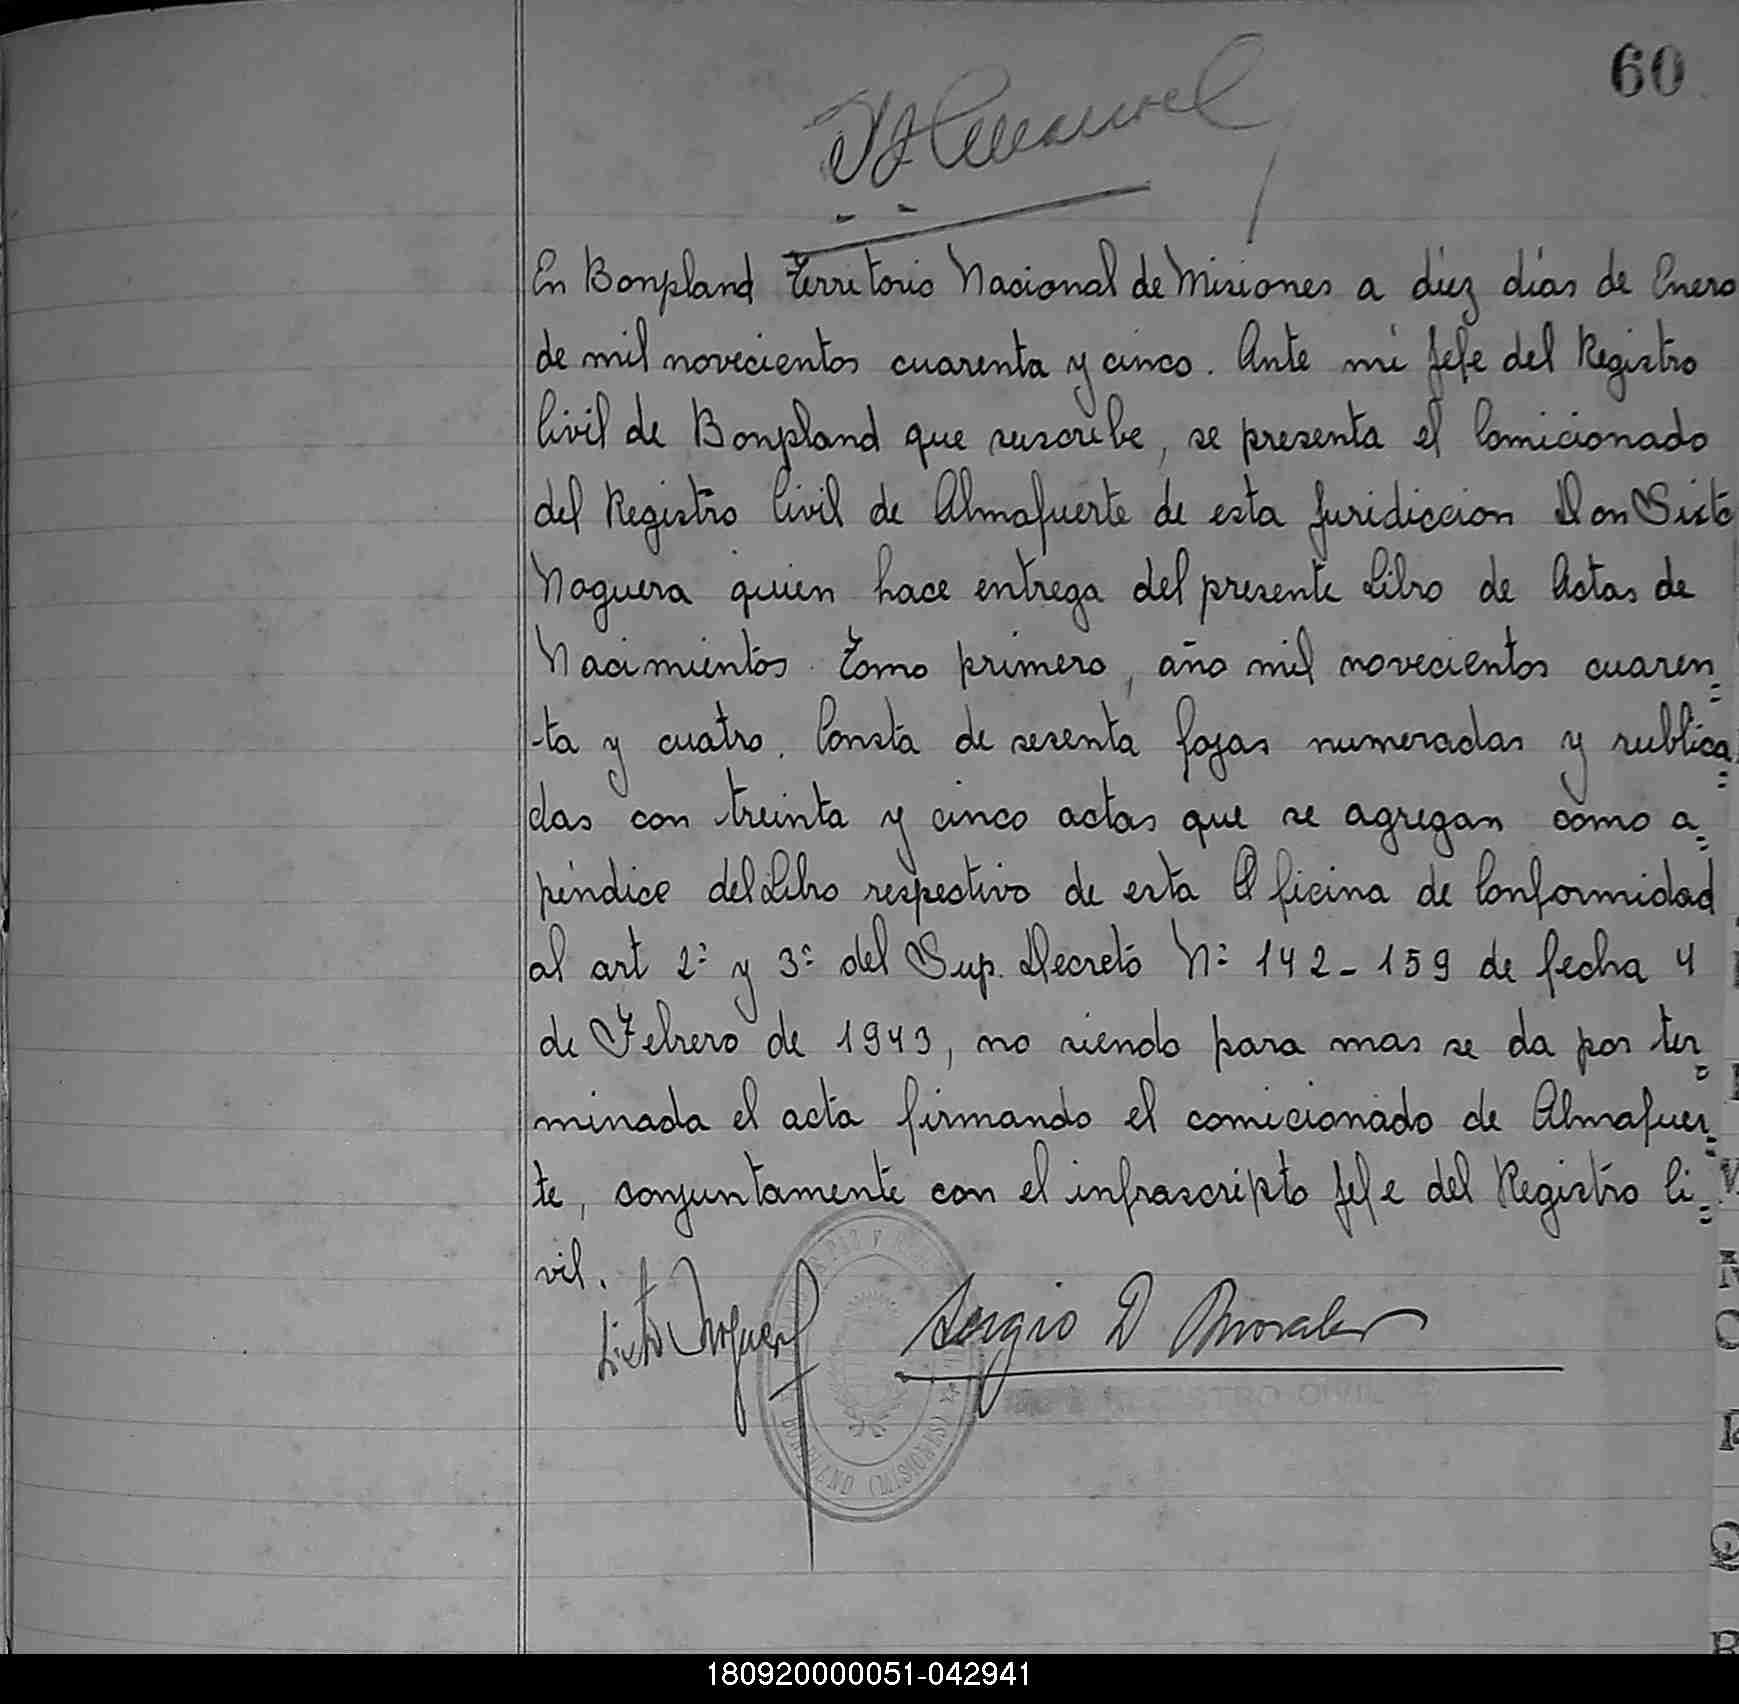 60
En Bonpland Territorio Nacional de Misiones a diez días de Enero
de mil novecientos cuarenta y cinco. Ante mi Jefe del Registro
Civil de Bonpland que suscribe, se presenta el Comicionado
del Registro Civil de Almafuerte de esta Juridiccion Don Sixto
Noguera quien hace entrega del presente Libro de Actas de
Nacimientos. Tomo primero, año mil novecientos cuaren=
-ta y cuatro. Consta de sesenta fojas numeradas y rublica=
das con treinta y cinco actas que se agregan como a=
péndice del Libro respectivo de esta Oficina de Conformidad
al art 2º y 3º del Sup. Decreto Nº 142-159 de fecha 4
de Febrero de 1943, no siendo para mas se da por ter=
minada el acta firmando el comicionado de Almafuer=
te, conjuntamente con el infrascripto Jefe del Registro Ci=
vil.
Sixto Noguera Sergio D Morales
BONPLAND (MISIONES)
180920000051-042941